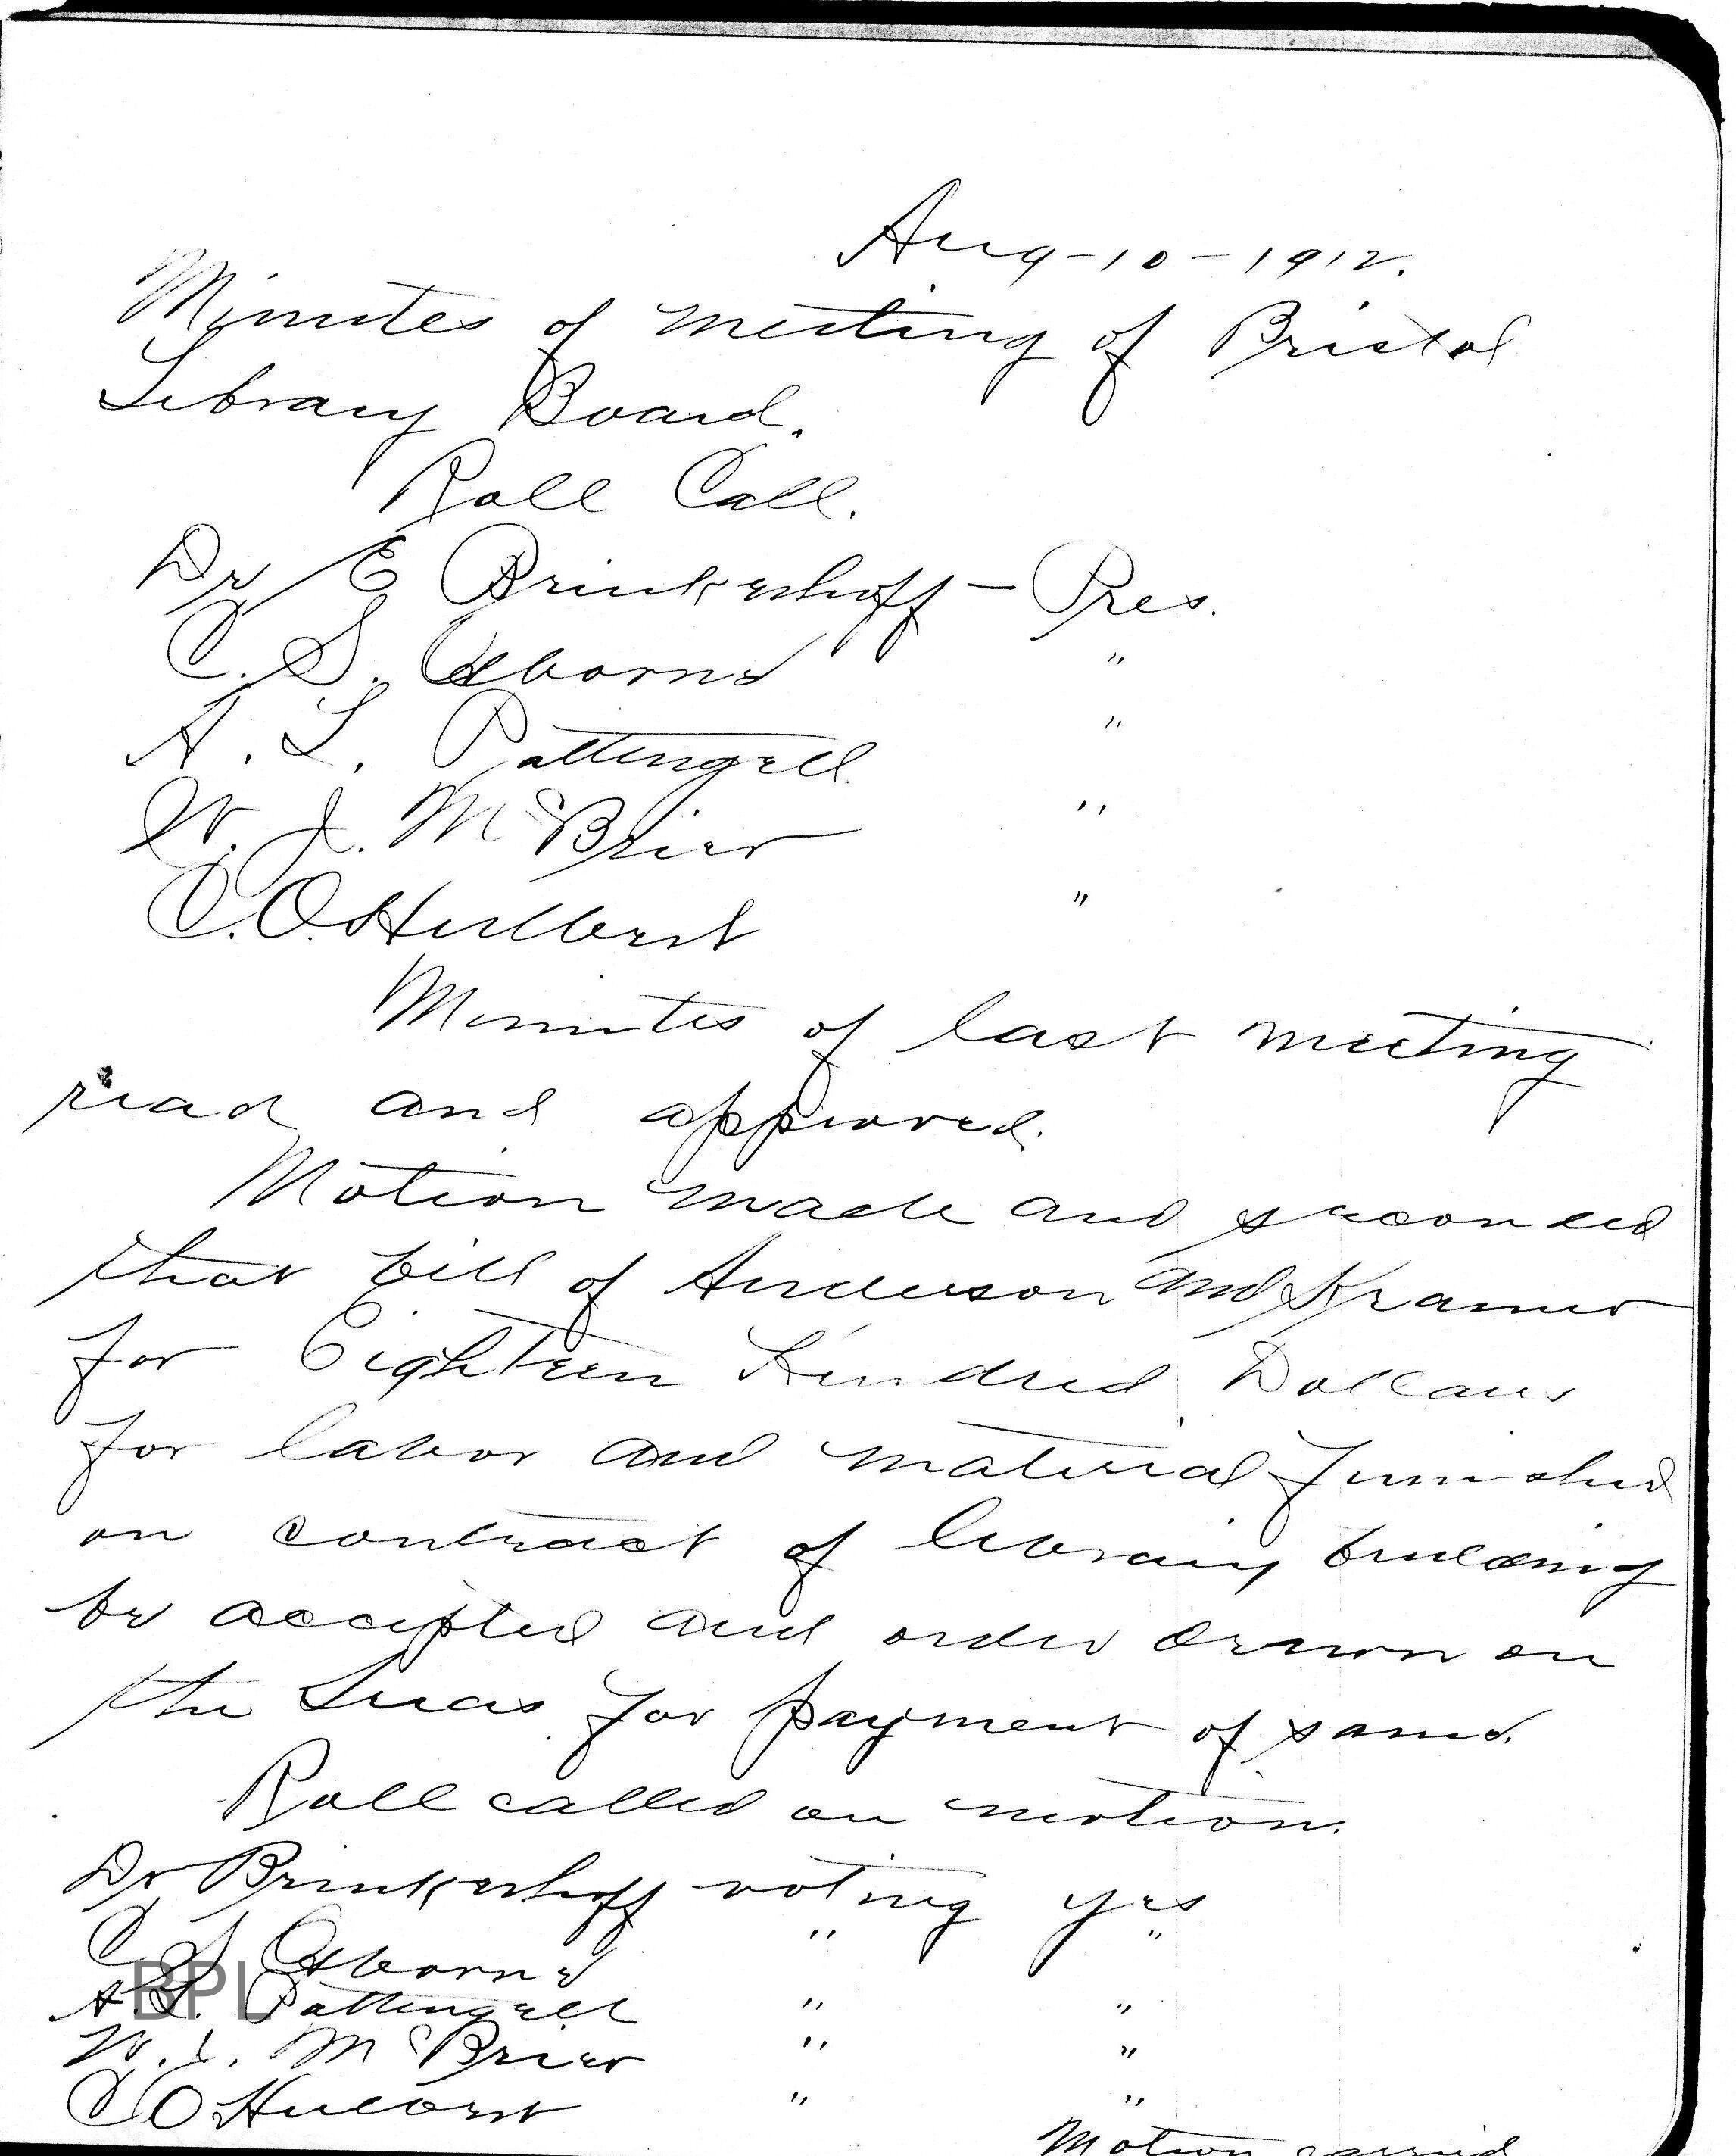 Aug-10-1912.
Minutes of meeting of Bristol
Library Board.
Roll Call.
Dr E Brinkerhoff - Pres.
C. S. Osborne "
A. L. Pattingell "
W. J. McBrier "
C. O. Hulbert "
Minutes of last meeting
read and approved.
Motion made and seconded
that bill of Anderson and Kramer
for Eighteen Hundred Dollars
for labor and material furnished
on contract of library building
be accepted and order drawn on
the Treas for payment of same.
Roll called on motion.
Dr Brinkerhoff voting yes
C S Osborne " "
A. L. Pattingell " "
W. J. McBrier " "
C O Hulbert " "
Motion carried
BPL